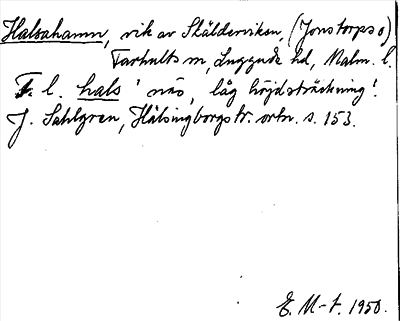 Halsahamn, vik av Skälderviken, (Jonstorps o)
Farhults sn, Luggude hd, Malm. l.
F. l. hals 'näs, låg höjdsträckning'.
J. Sahlgren, Hälsingborgstr. ortn. s. 153.
E. M-t. 1950.